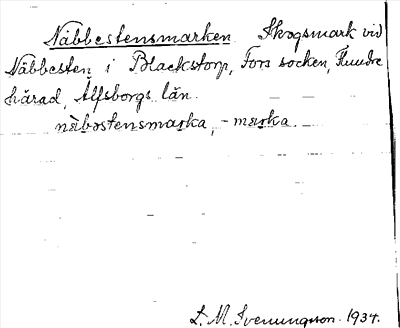 Näbbestensmarken Skogsmark vid
Näbbesten i Blackstorp, Fors socken, Flundre
härad, Älfsborgs län.
näbostensmarka, -marka.
L. M. Svenungsson. 1934.